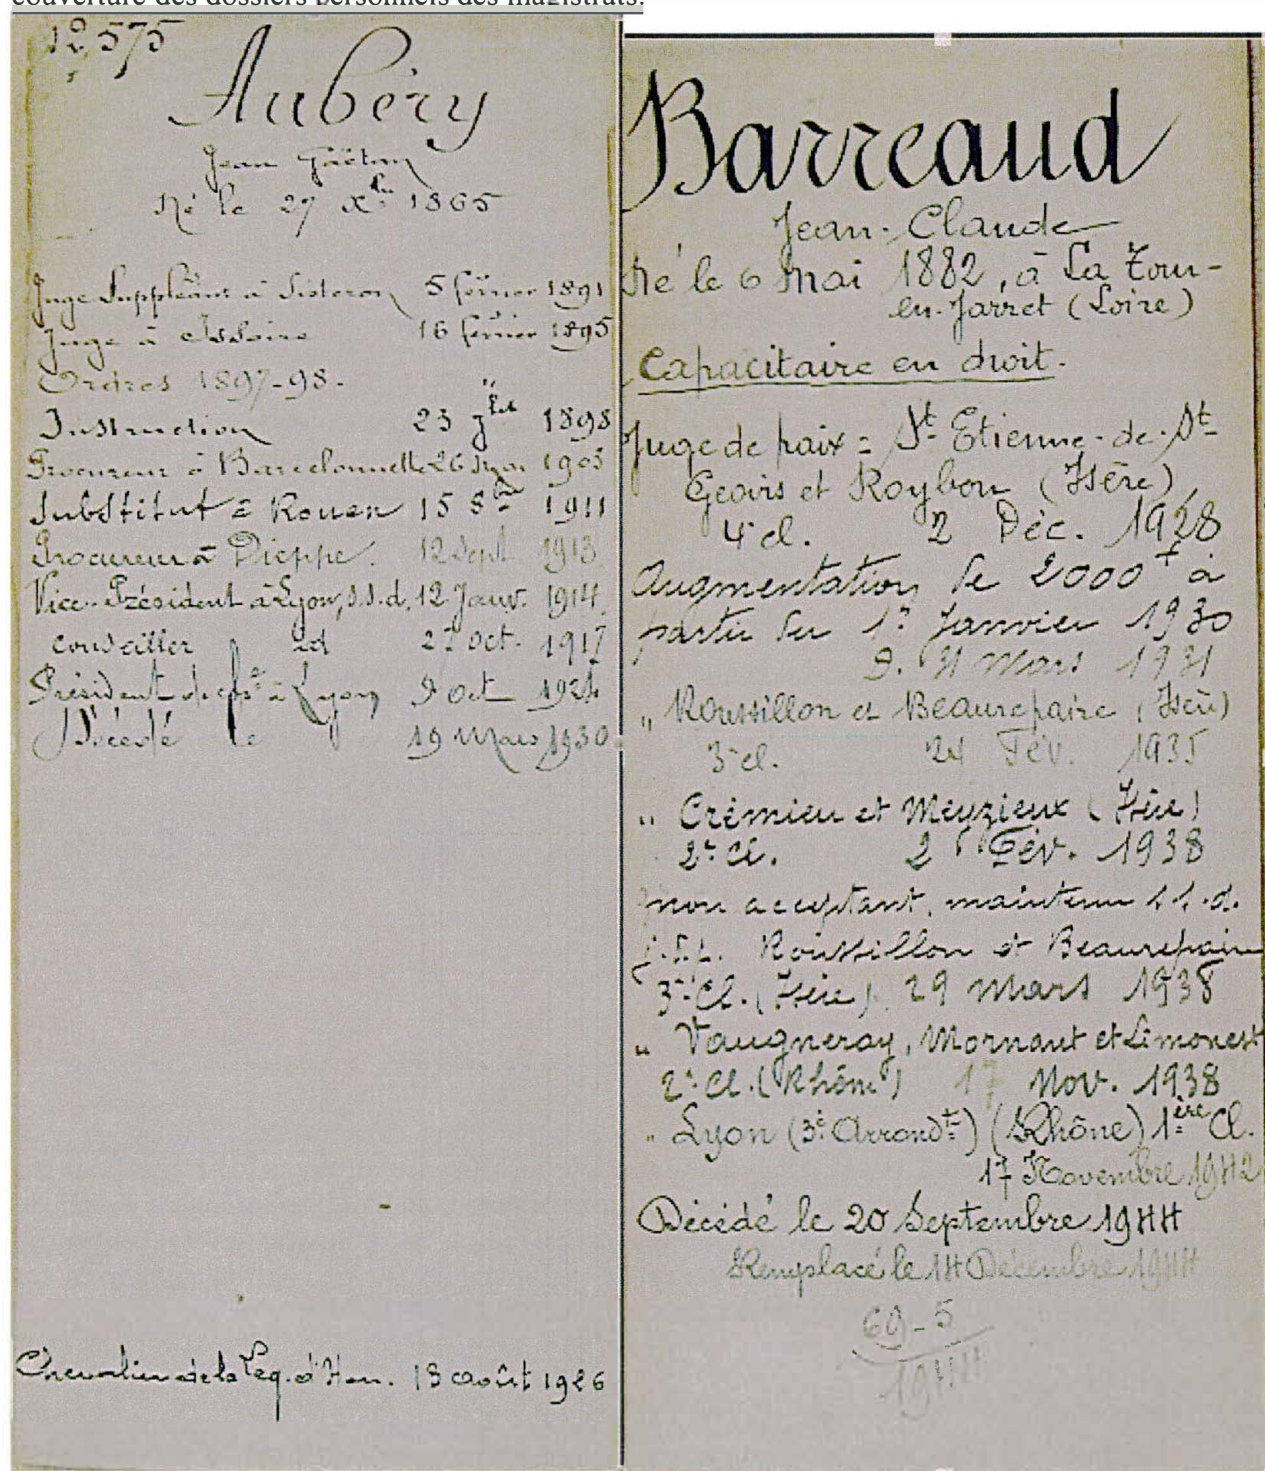 couverture des dossiers personnels des magistrats.
12,575
Aubéry
Jean Gaëtan
Né le 27 Xbre 1865
Juge Suppléant à Sisteron 5 février 1891
Juge à Issoire 16 février 1895
Ordres 1897-98.
Instruction 23 Jlet 1898
Procureur à Barcelonnette 26 1903
Substitut à Rouen 15 8bre 1911
Procureur à Dieppe. 12 Sept. 1913
Vice-Président à Lyon, s.s.d. 12 Janv. 1914
Conseiller id 27 oct. 1917
Président de chbre à Lyon 9 oct 1924
Décédé le 19 Mars 1930
Chevalier de la Lég. d'Hon. 13 août 1926
Barreaud
Jean-Claude
Né le 6 Mai 1882, à La Tour-
en-Jarret (Loire)
Capacitaire en droit.
Juge de paix = St-Etienne-de-St-
Geoirs et Roybon (Isère)
4e cl. 2 Déc. 1928
Augmentation de 2000 f à
partir du 1er Janvier 1930
D. 31 Mars 1931
" Roussillon et Beaurepaire (Isère)
3e cl. 24 Fév. 1935
" Crémieu et Meyzieux (Isère)
2e Cl. 2 Fév. 1938
non acceptant, maintenu s.s.d.
Roussillon et Beaurepaire
3e Cl. (Isère) 29 Mars 1938
" Vaugneray, Mornant et Limonest
2e Cl. (Rhône) 17 Nov. 1938
" Lyon (3e Arrondt) (Rhône) 1ère Cl.
17 Novembre 1942
Décédé le 20 Septembre 1944
Remplacé le 14 Décembre 1944
69-5
1944